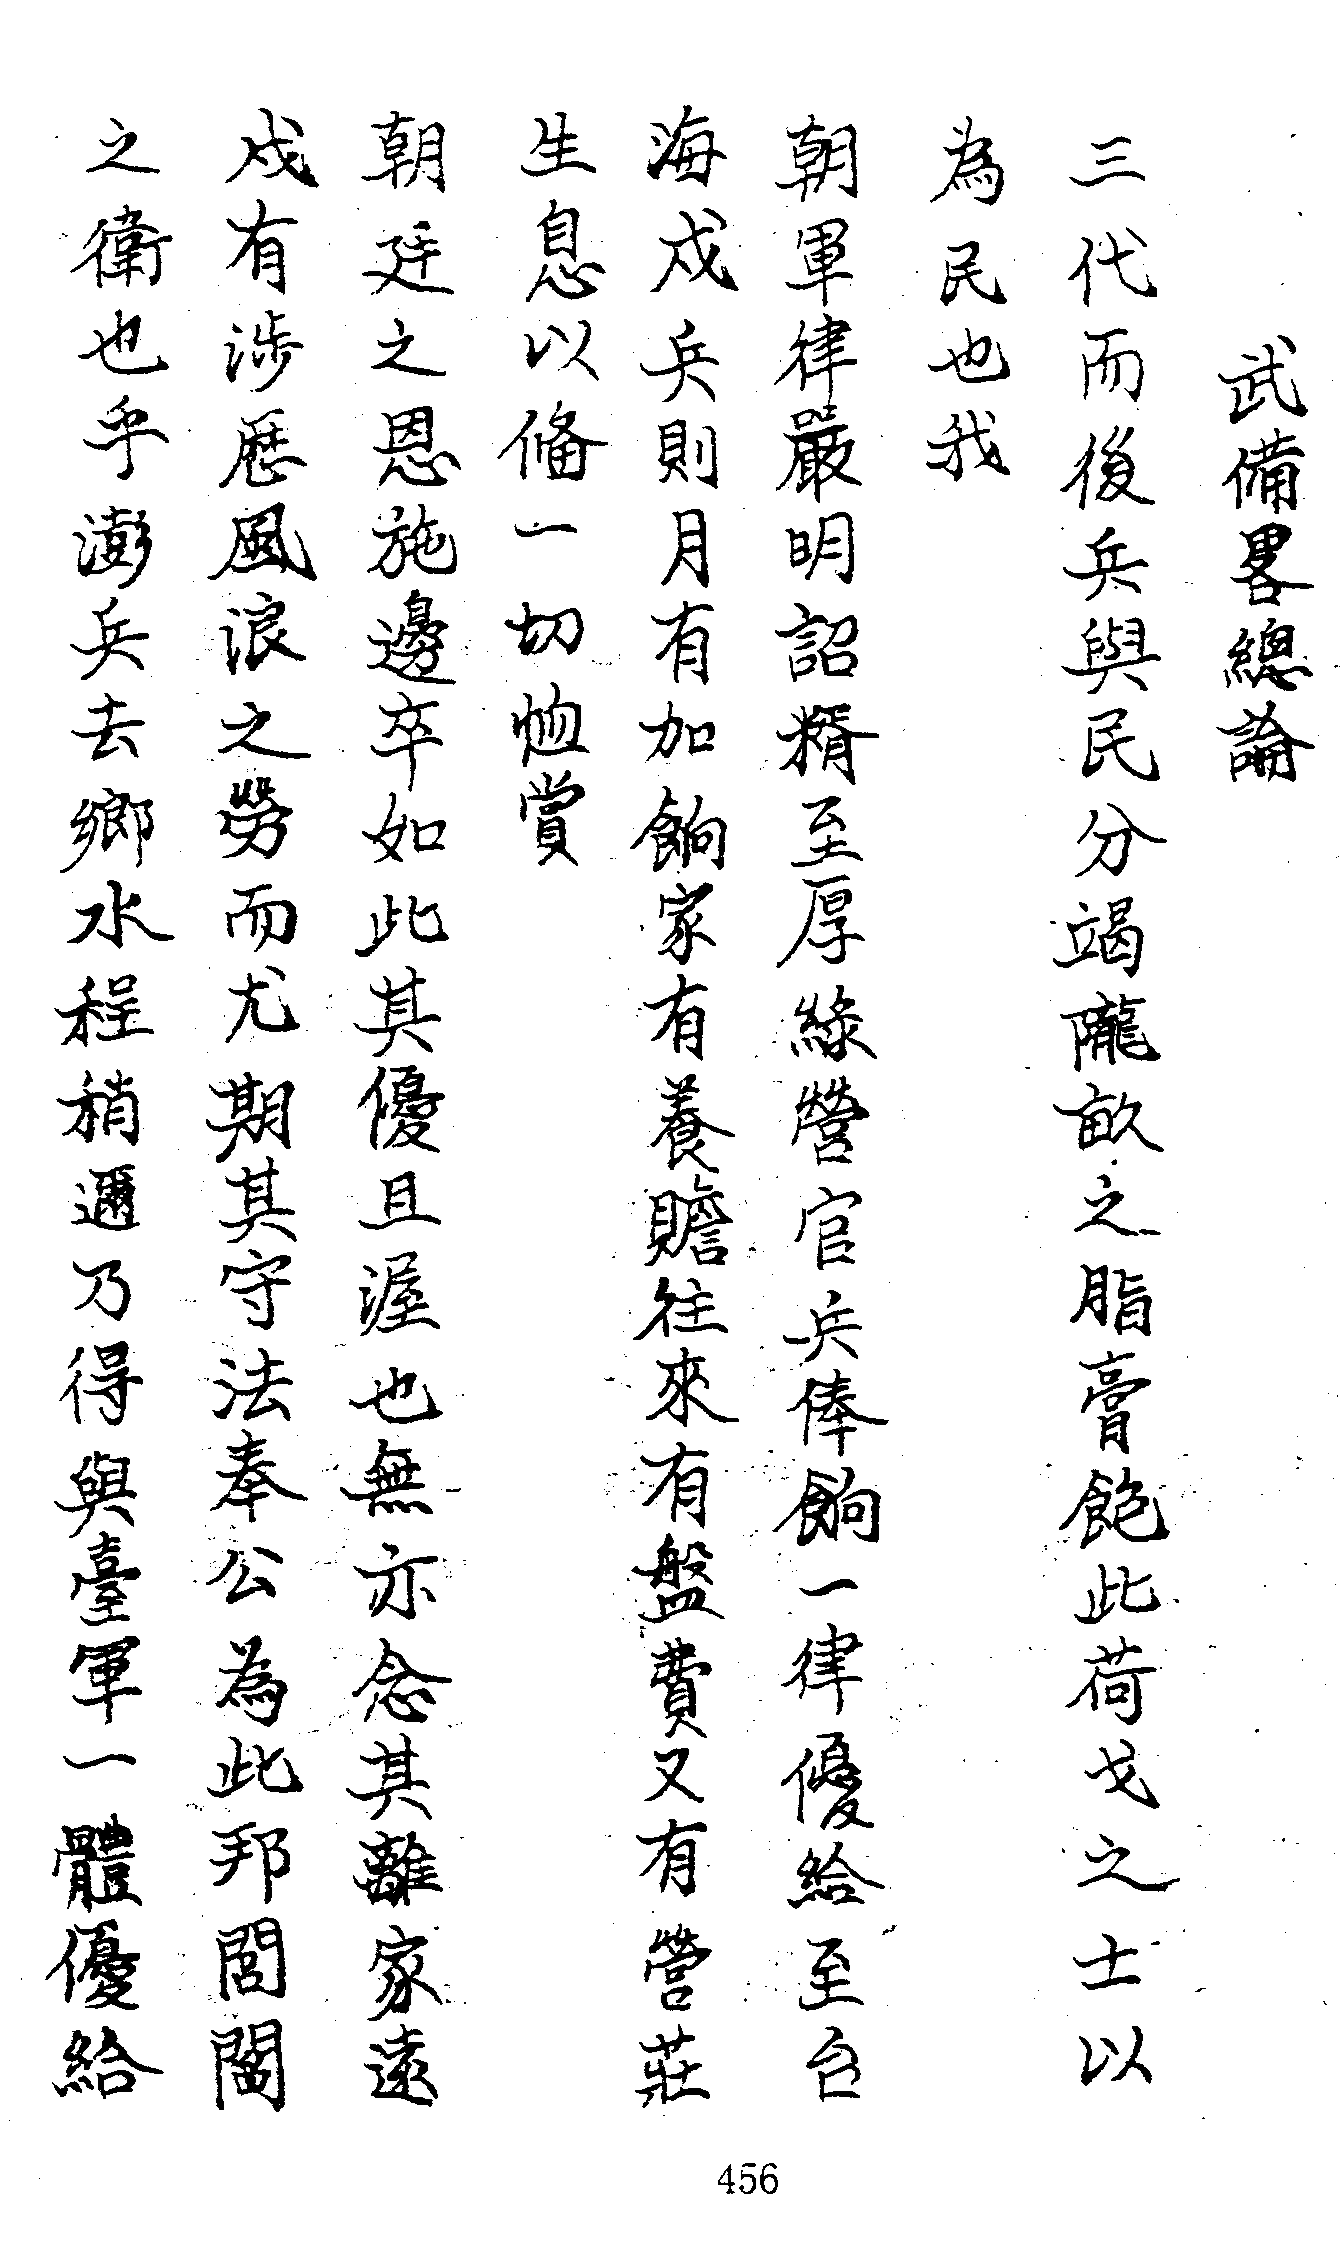 武備畧總論
三代而後兵與民分竭隴畝之脂膏飽此荷戈之士以
為民也我
朝軍律嚴明詔糈至厚綠營官兵俸餉一律優給至台
海戍兵則月有加餉家有養贍往來有盤費又有營莊
生息以俻一切恤賞
朝廷之恩施邊卒如此其優且渥也無亦念其離家遠
戍有涉歷風浪之勞而尤期其守法奉公為此邦閭閻
之衛也乎澎兵去鄉水程稍邇乃得與臺軍一體優給
456